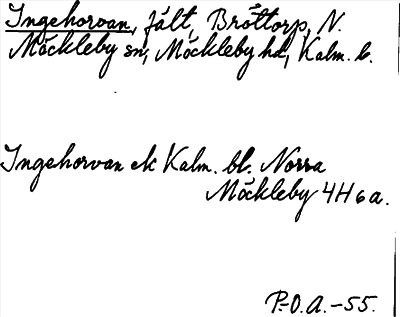 Ingehorvan, fält, Bröttorp, N.
Möckleby sn, Möckleby hd, Kalm. l.
Ingehorvan ek Kalm. bl. Norra
Möckleby 4H6a.
P.-O.A.-55.